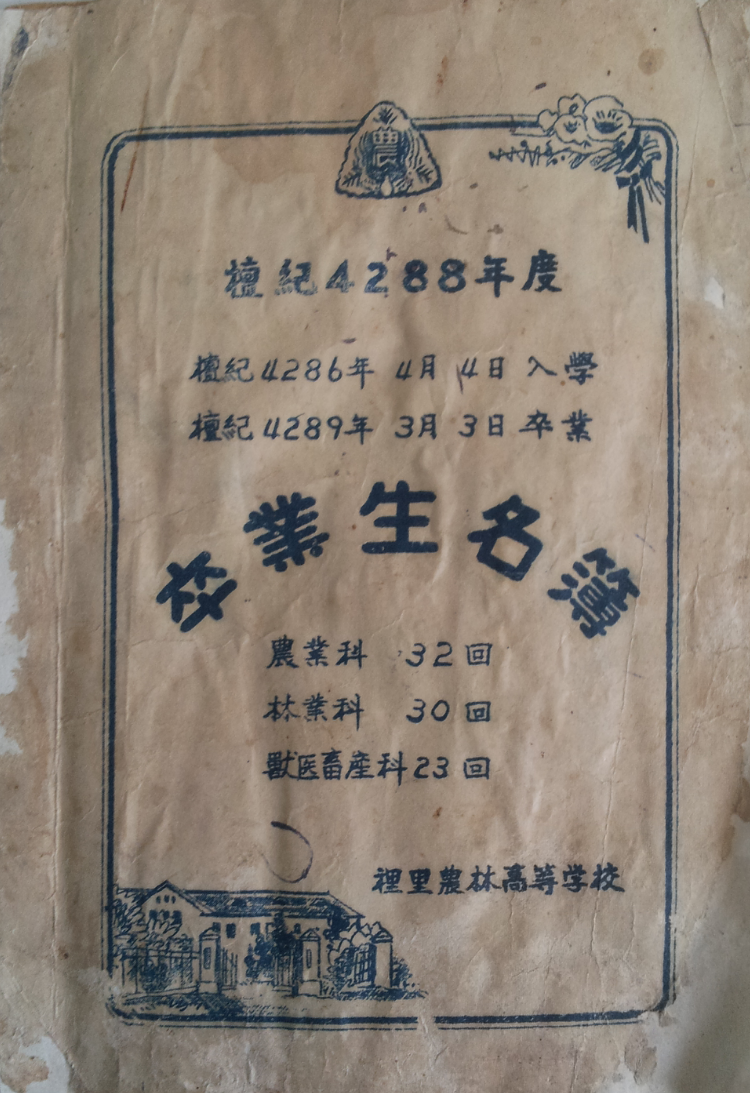 農
檀紀4288年度
檀紀4286年 4月 4日 入學
檀紀4289年 3月 3日 卒業
卒業生名簿
農業科 32回
林業科 30回
獸医畜産科 23回
裡里農林高等学校